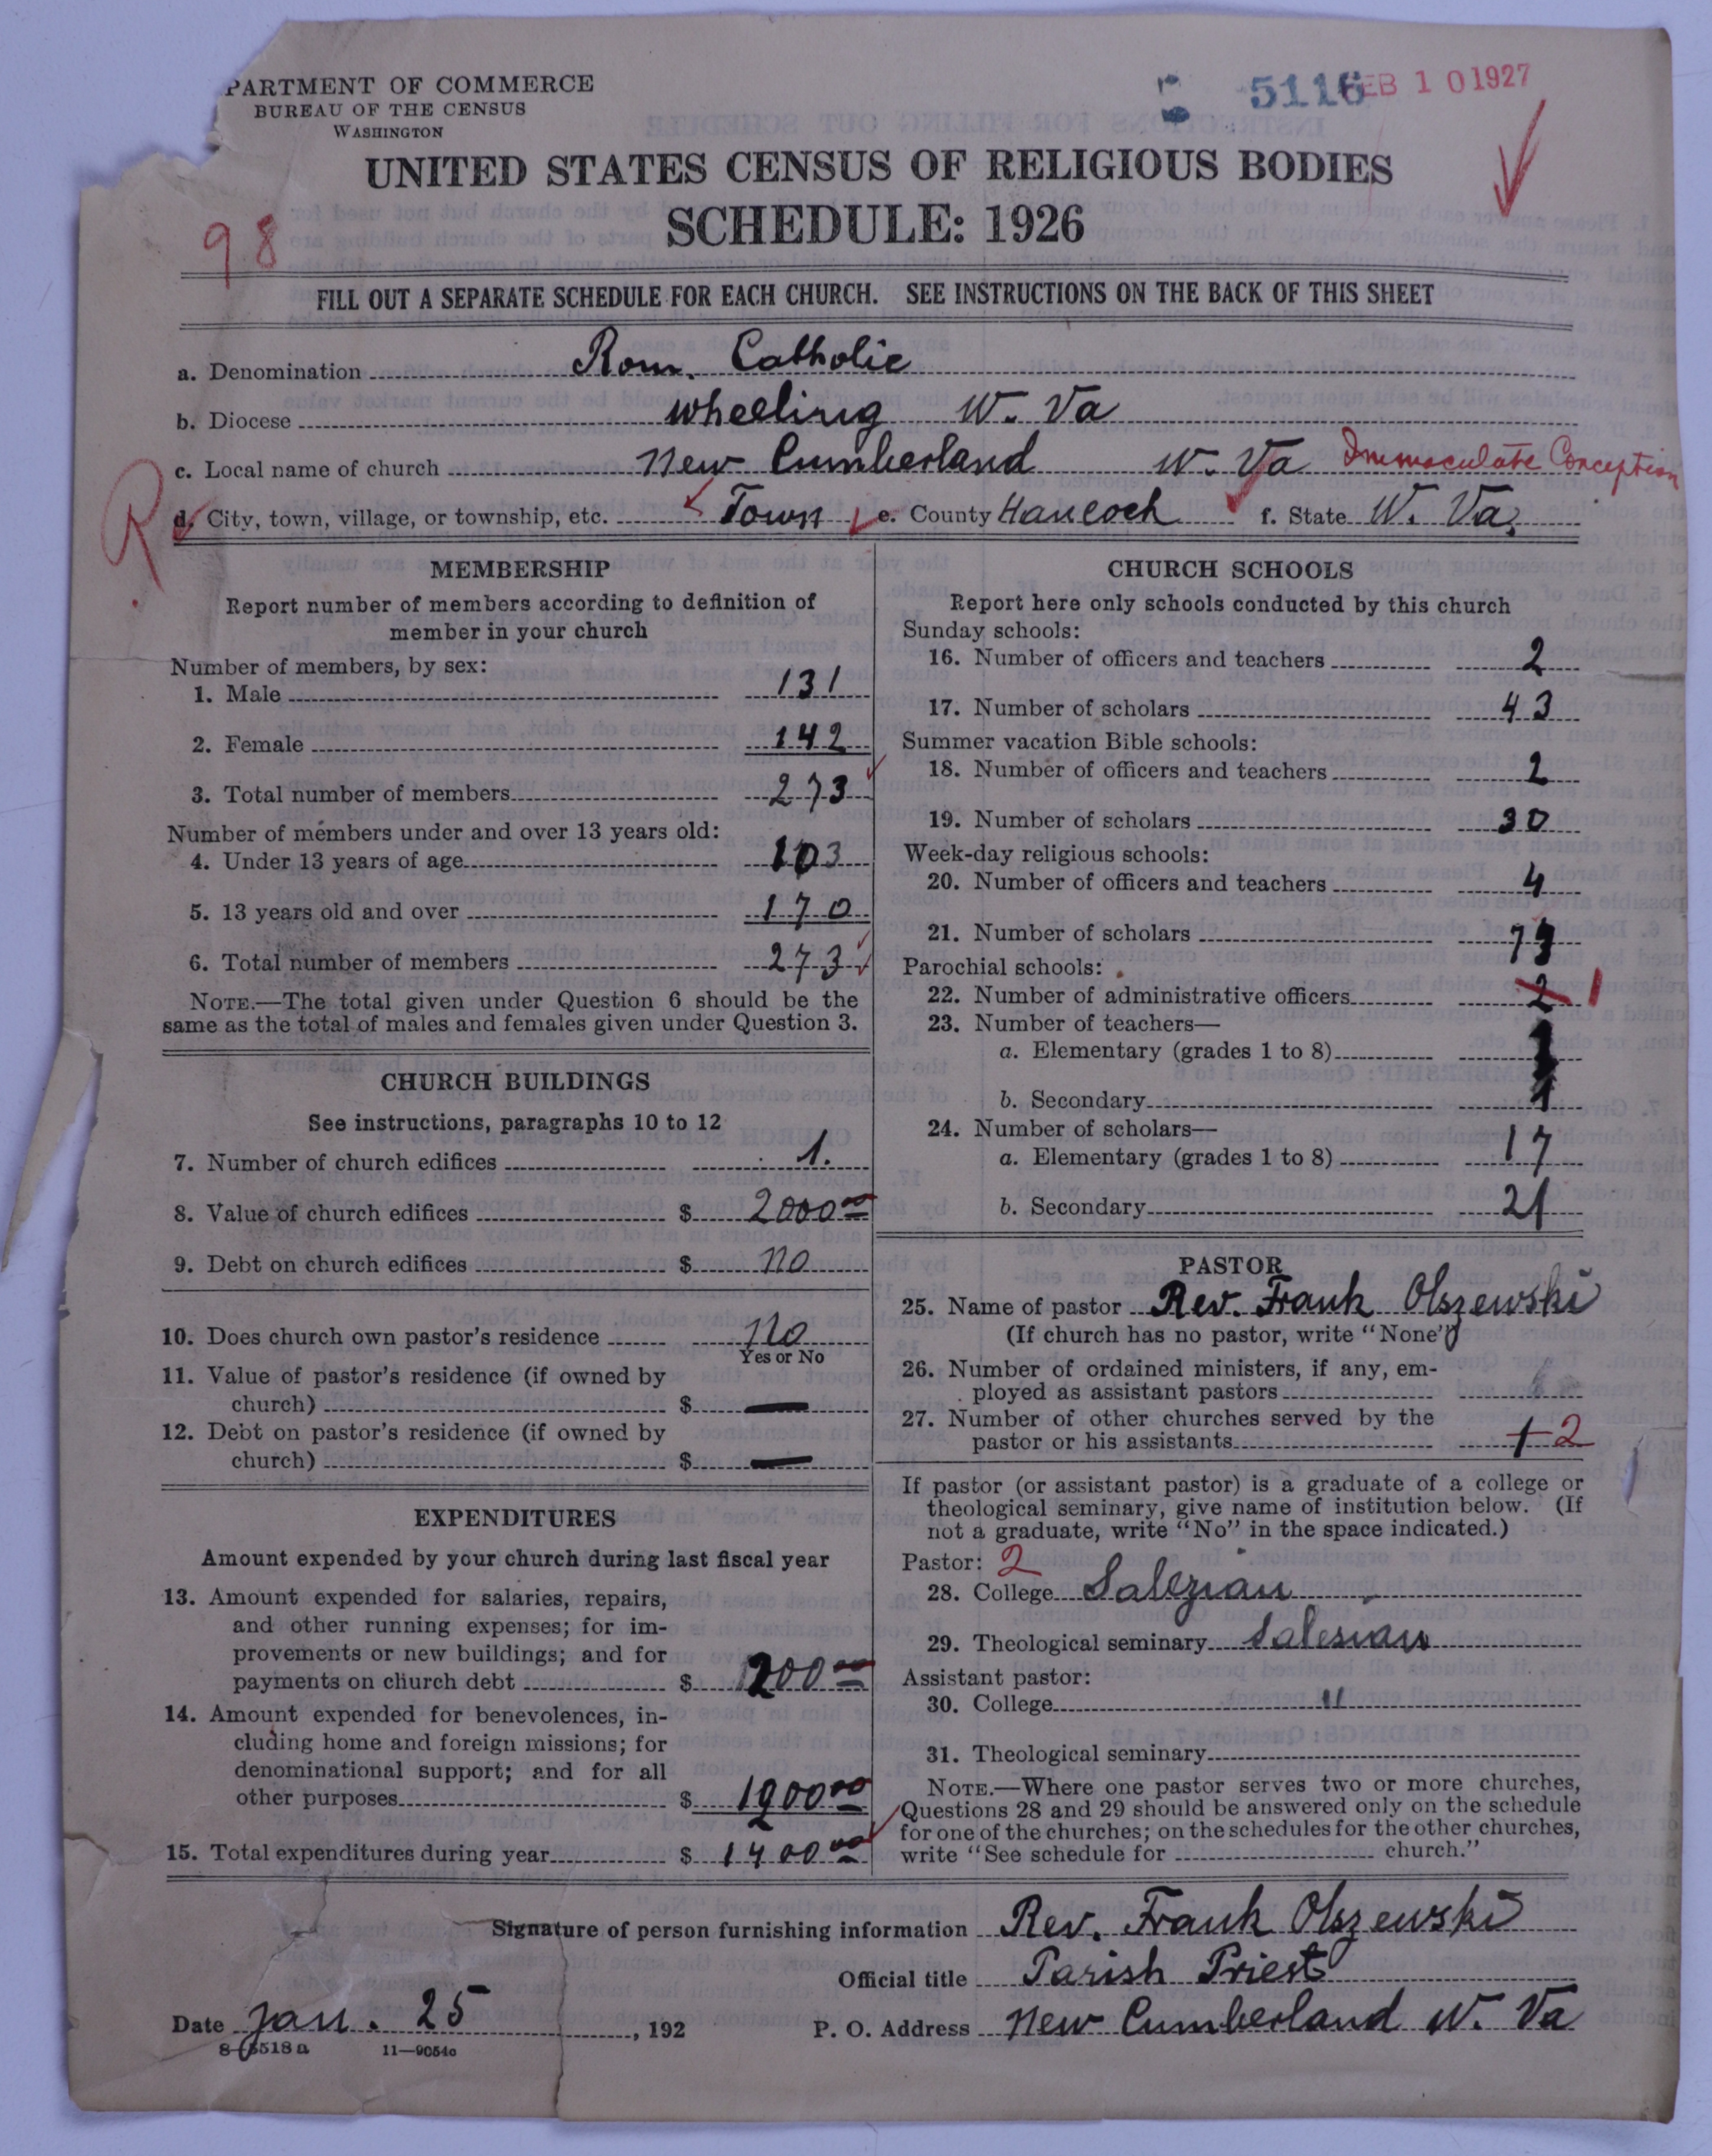 PARTMENT OF COMMERCE
BUREAU OF THE CENSUS
WASHINGTON
5 5116
EB 1 0 1927
UNITED STATES CENSUS OF RELIGIOUS BODIES
SCHEDULE: 1926
98
FILL OUT A SEPARATE SCHEDULE FOR EACH CHURCH. SEE INSTRUCTIONS ON THE BACK OF THIS SHEET
a. Denomination Rom. Catholic
b. Diocese Wheeling W. Va
c. Local name of church New Cumberland W. Va Immaculate Conception
R
d. City, town, village, or township, etc. Town e. County Hancock f. State W. Va.
MEMBERSHIP
Report number of members according to definition of
member in your church
Number of members, by sex:
1. Male 131
2. Female 142
3. Total number of members 273
Number of members under and over 13 years old:
4. Under 13 years of age 103
5. 13 years old and over 170
6. Total number of members 273
NOTE.—The total given under Question 6 should be the
same as the total of males and females given under Question 3.
CHURCH BUILDINGS
See instructions, paragraphs 10 to 12
7. Number of church edifices 1.
8. Value of church edifices $ 2000.00
9. Debt on church edifices $ no
10. Does church own pastor's residence no
Yes or No
11. Value of pastor's residence (if owned by
church) $ —
12. Debt on pastor's residence (if owned by
church) $ —
EXPENDITURES
Amount expended by your church during last fiscal year
13. Amount expended for salaries, repairs,
and other running expenses; for im-
provements or new buildings; and for
payments on church debt $ 200 00
14. Amount expended for benevolences, in-
cluding home and foreign missions; for
denominational support; and for all
other purposes $ 1200 00
15. Total expenditures during year $ 1400 00
CHURCH SCHOOLS
Report here only schools conducted by this church
Sunday schools:
16. Number of officers and teachers 2
17. Number of scholars 43
Summer vacation Bible schools:
18. Number of officers and teachers 2
19. Number of scholars 30
Week-day religious schools:
20. Number of officers and teachers 4
21. Number of scholars 73
Parochial schools:
22. Number of administrative officers 2 1
23. Number of teachers—
a. Elementary (grades 1 to 8)
b. Secondary 1
24. Number of scholars—
a. Elementary (grades 1 to 8) 17
b. Secondary 21
PASTOR
25. Name of pastor Rev. Frank Olszewski
(If church has no pastor, write "None")
26. Number of ordained ministers, if any, em-
ployed as assistant pastors
27. Number of other churches served by the
pastor or his assistants 1 2
If pastor (or assistant pastor) is a graduate of a college or
theological seminary, give name of institution below. (If
not a graduate, write "No" in the space indicated.)
Pastor: 2
28. College Salezian
29. Theological seminary Salesian
Assistant pastor:
30. College "
31. Theological seminary
NOTE.—Where one pastor serves two or more churches,
Questions 28 and 29 should be answered only on the schedule
for one of the churches; on the schedules for the other churches,
write "See schedule for church."
Signature of person furnishing information Rev. Frank Olszewski
Official title Parish Priest
Date Jan. 25, 192
P. O. Address New Cumberland W. Va
8-5518 a 11—9054a